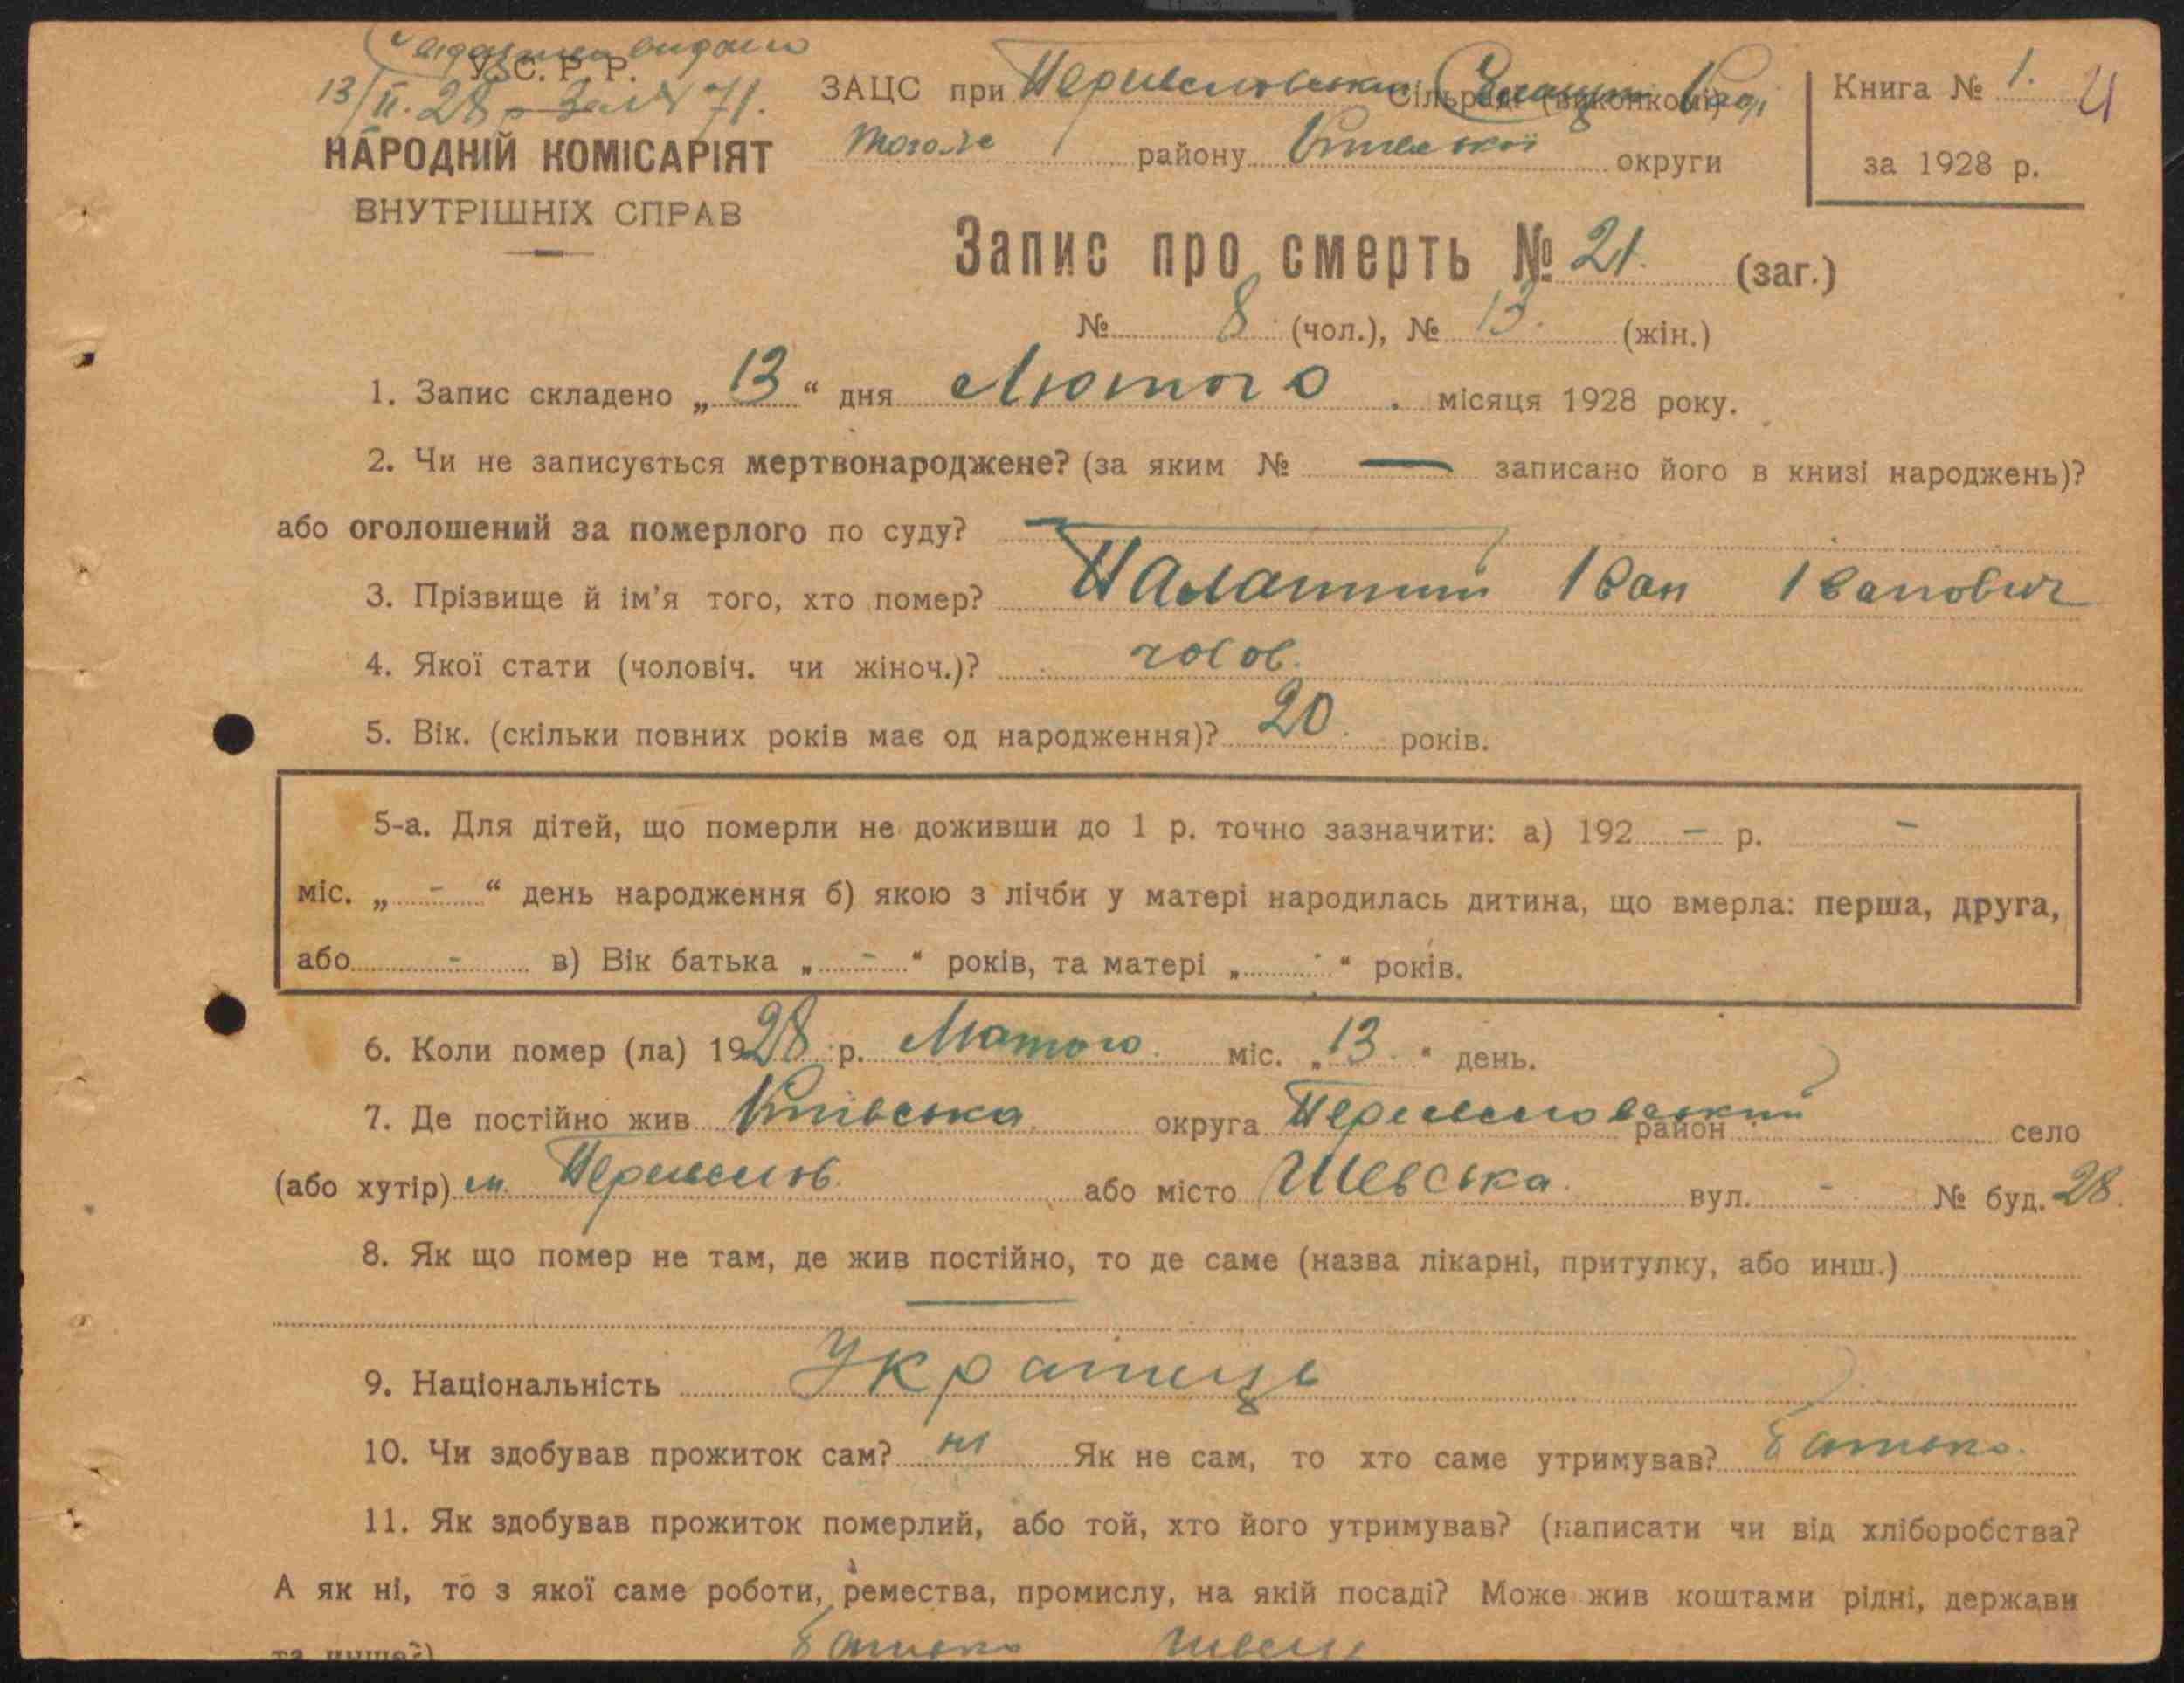 У. С. Р. Р.
13/II. 28 р. За № 71.
НАРОДНІЙ КОМІСАРІЯТ
ВНУТРІШНІХ СПРАВ
ЗАЦС при Сільраді (виконкомі)
того-же району Київської округи
Книга № 1. 21
за 1928 р.
Запис про смерть № 21. (заг.)
№ 8 (чол.), № 13. (жін.)
1. Запис складено „13“ дня Лютого місяця 1928 року.
2. Чи не записується мертвонароджене? (за яким № — записано його в книзі народжень)?
або оголошений за померлого по суду? —
3. Прізвище й ім'я того, хто помер? Іван Іванович
4. Якої стати (чоловіч. чи жіноч.)? чолов.
5. Вік. (скільки повних років має од народження)? 20. років.
5-а. Для дітей, що померли не доживши до 1 р. точно зазначити: а) 192 – р. –
міс. „ - “ день народження б) якою з лічби у матері народилась дитина, що вмерла: перша, друга,
або - в) Вік батька „ - “ років, та матері „ “ років.
6. Коли помер (ла) 1928 р. Лютого міс. „13.“ день.
7. Де постійно жив Київська округа район село
(або хутір) м. або місто Шевська вул. - № буд. 28.
8. Як що помер не там, де жив постійно, то де саме (назва лікарні, притулку, або инш.)
—
9. Національність Українець
10. Чи здобував прожиток сам? ні Як не сам, то хто саме утримував? Батько.
11. Як здобував прожиток померлий, або той, хто його утримував? (написати чи від хліборобства?
А як ні, то з якої саме роботи, ремества, промислу, на якій посаді? Може жив коштами рідні, держави
та инше?) Батько швець